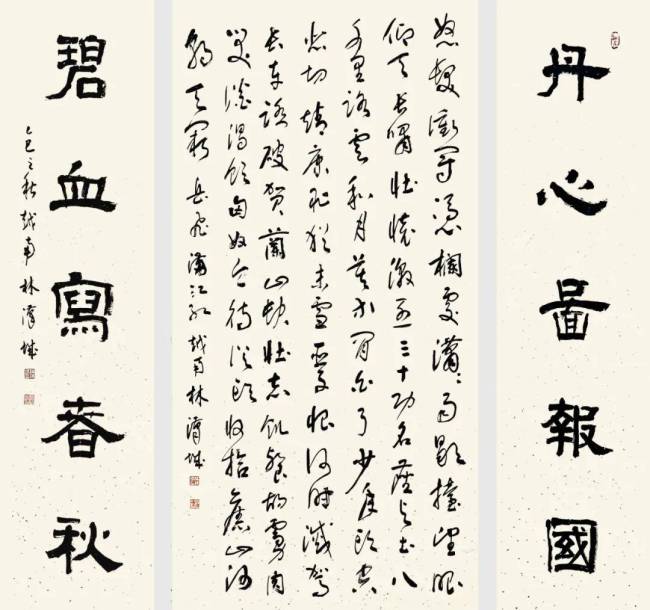 丹心圖報國
怒髮衝冠憑欄處瀟〻雨歇擡望眼
仰天長嘯壯懷激烈三十功名塵與土八
千里路雲和月莫等閒白了少年頭空
悲切靖康恥猶未雪臣子恨何時滅駕
長車踏破賀蘭山缺壯志飢餐胡虜肉
笑談渴飲匈奴血待從頭收拾舊山河
朝天闕 岳飛滿江紅 越南林漢城
碧血寫春秋
乙巳之秋越南林漢城